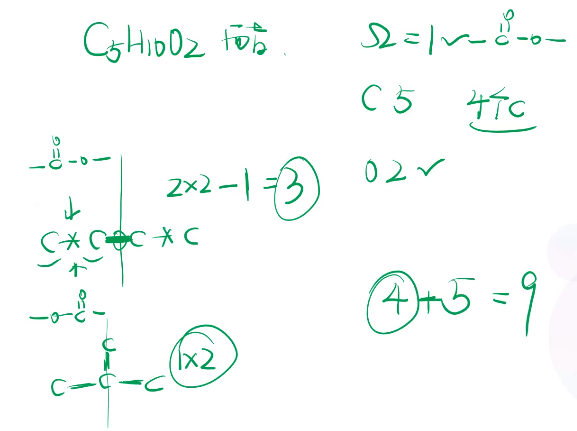 C5H10O2 酯
Ω=1✓ -C(=O)-O-
C 5 4个C
O 2 ✓
-C(=O)-O-
2×2-1=3
C * C C * C
-O-C(=O)-
C
C-C-C 1×2
4+5=9